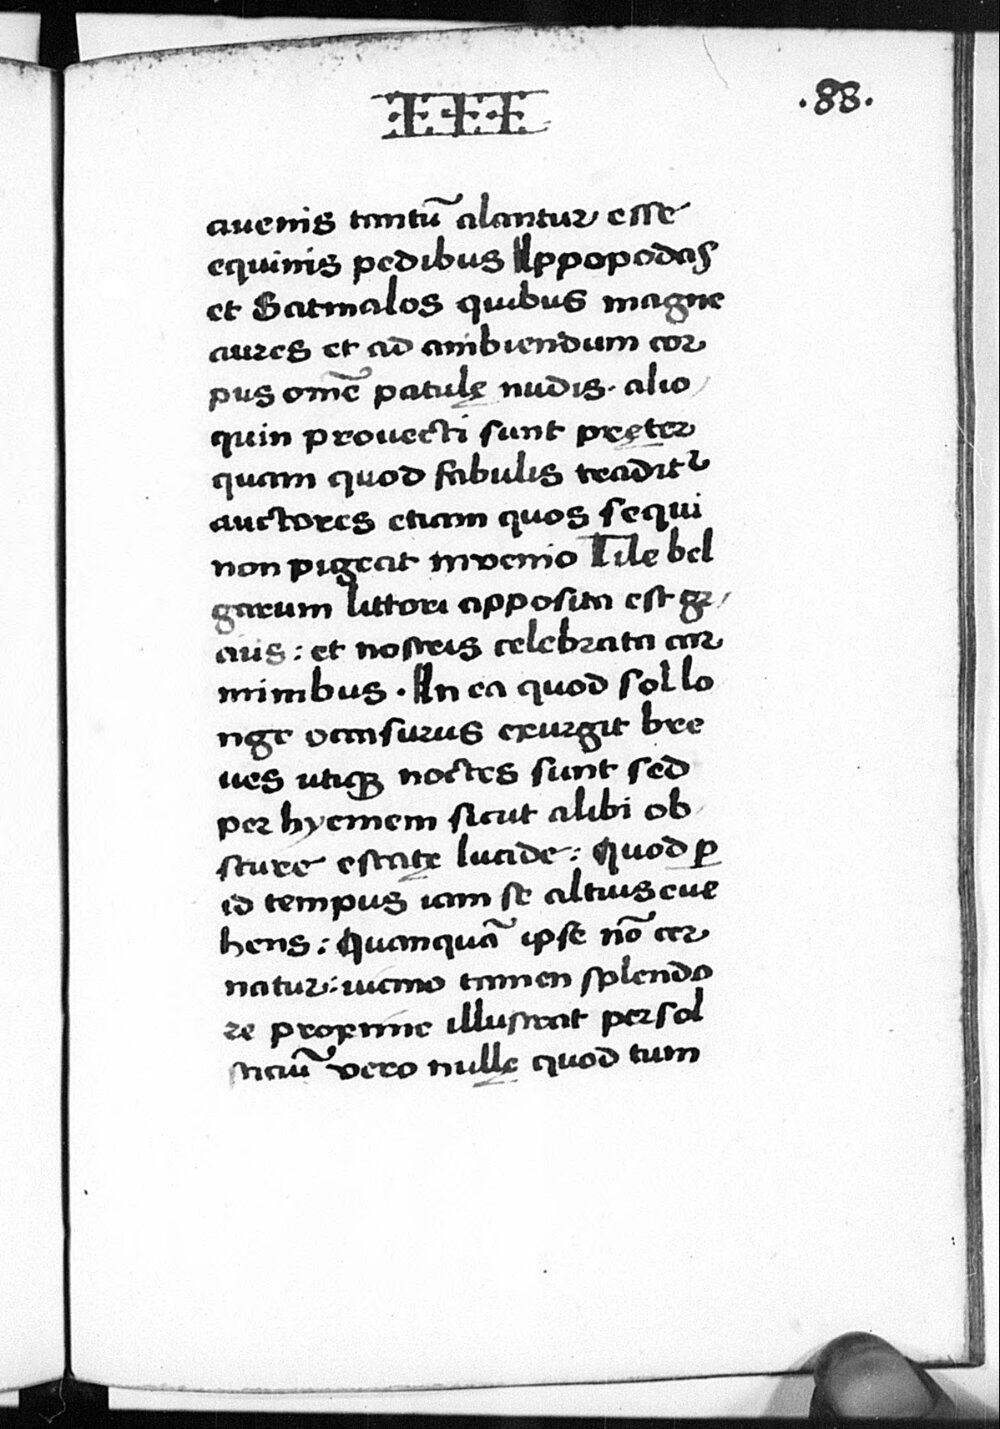 III
.88.
auenis tantū alantur esse
equinis pedibus Ippopodas
et Satmalos quibus magne
aures et ad ambiendum cor
pus omē patulę nudis. alio
quin prouecti sunt pręter
quam quod fabulis tradit᷑
auctores etiam quos sequi
non pigeat inuenio Tile bel
garum littori apposita est gr
aiis: et nostris celebrata car
minibus. In ea quod sol lo
nge occasurus exurgit bre
ues utiqꝫ noctes sunt sed
per hyemem sicut alibi ob
scure estatę lucide: Quod ꝑ
id tempus iam se altius eue
hens: Quanquā ipse nō cer
natur: uicino tamen splendo
re proxime illustrat per sol
sticiū vero nullę quod tum